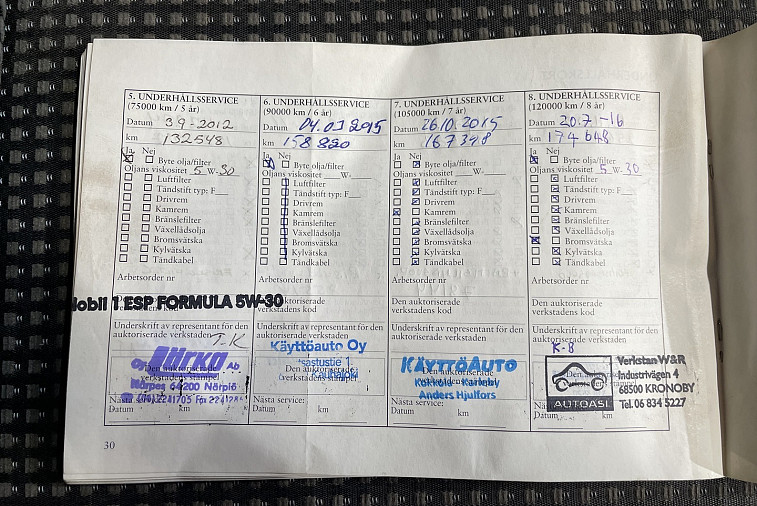 5. UNDERHÅLLSSERVICE
(75000 km / 5 år)
Datum 3.9-2012
km 132548
Ja Nej
Byte olja/filter
Oljans viskositet 5 W-30
Luftfilter
Tändstift typ: F
Drivrem
Kamrem
Bränslefilter
Växellådsolja
Bromsvätska
Kylvätska
Tändkabel
Arbetsorder nr
Mobil 1 ESP FORMULA 5W-30
Underskrift av representant för den
auktoriserade verkstaden T.K
Den auktoriserade
verkstadens stämpel
AB
64200 Närpiö
Nästa service:
Datum km
6. UNDERHÅLLSSERVICE
(90000 km / 6 år)
Datum
km 158 820
Ja Nej
Byte olja/filter
Oljans viskositet W-
Luftfilter
Tändstift typ: F
Drivrem
Kamrem
Bränslefilter
Växellådsolja
Bromsvätska
Kylvätska
Tändkabel
Arbetsorder nr
Den auktoriserade
verkstadens kod
Underskrift av representant för den
auktoriserade verkstaden
Käyttöauto Oy
Den auktoriserade
verkstadens stämpel
Nästa service:
Datum km
7. UNDERHÅLLSSERVICE
(105000 km / 7 år)
Datum 26.10.2015
km 167398
Ja Nej
Byte olja/filter
Oljans viskositet W-
Luftfilter
Tändstift typ: F
Drivrem
Kamrem
Bränslefilter
Växellådsolja
Bromsvätska
Kylvätska
Tändkabel
Arbetsorder nr
Den auktoriserade
verkstadens kod
Underskrift av representant för den
auktoriserade verkstaden
KÄYTTÖAUTO
Den auktoriserade
verkstadens stämpel
Kokkola - Karleby
Anders Hjulfors
Nästa service:
Datum km
8. UNDERHÅLLSSERVICE
(120000 km / 8 år)
Datum 20.7-16
km 174 648
Ja Nej
Byte olja/filter
Oljans viskositet 5 W-30
Luftfilter
Tändstift typ: F
Drivrem
Kamrem
Bränslefilter
Växellådsolja
Bromsvätska
Kylvätska
Tändkabel
Arbetsorder nr
Den auktoriserade
verkstadens kod
Underskrift av representant för den
auktoriserade verkstaden
K-8
AUTOASI
Verkstan W&R
Industrivägen 4
68500 KRONOBY
Tel. 06 834 5227
Datum km
30